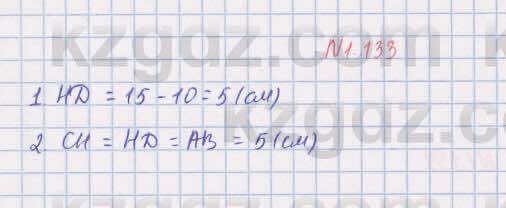 №1.133
1. HD = 15 - 10 = 5 (см)
2. CH = HD = AB = 5 (см)
kzgdz.com
kzgdz.com